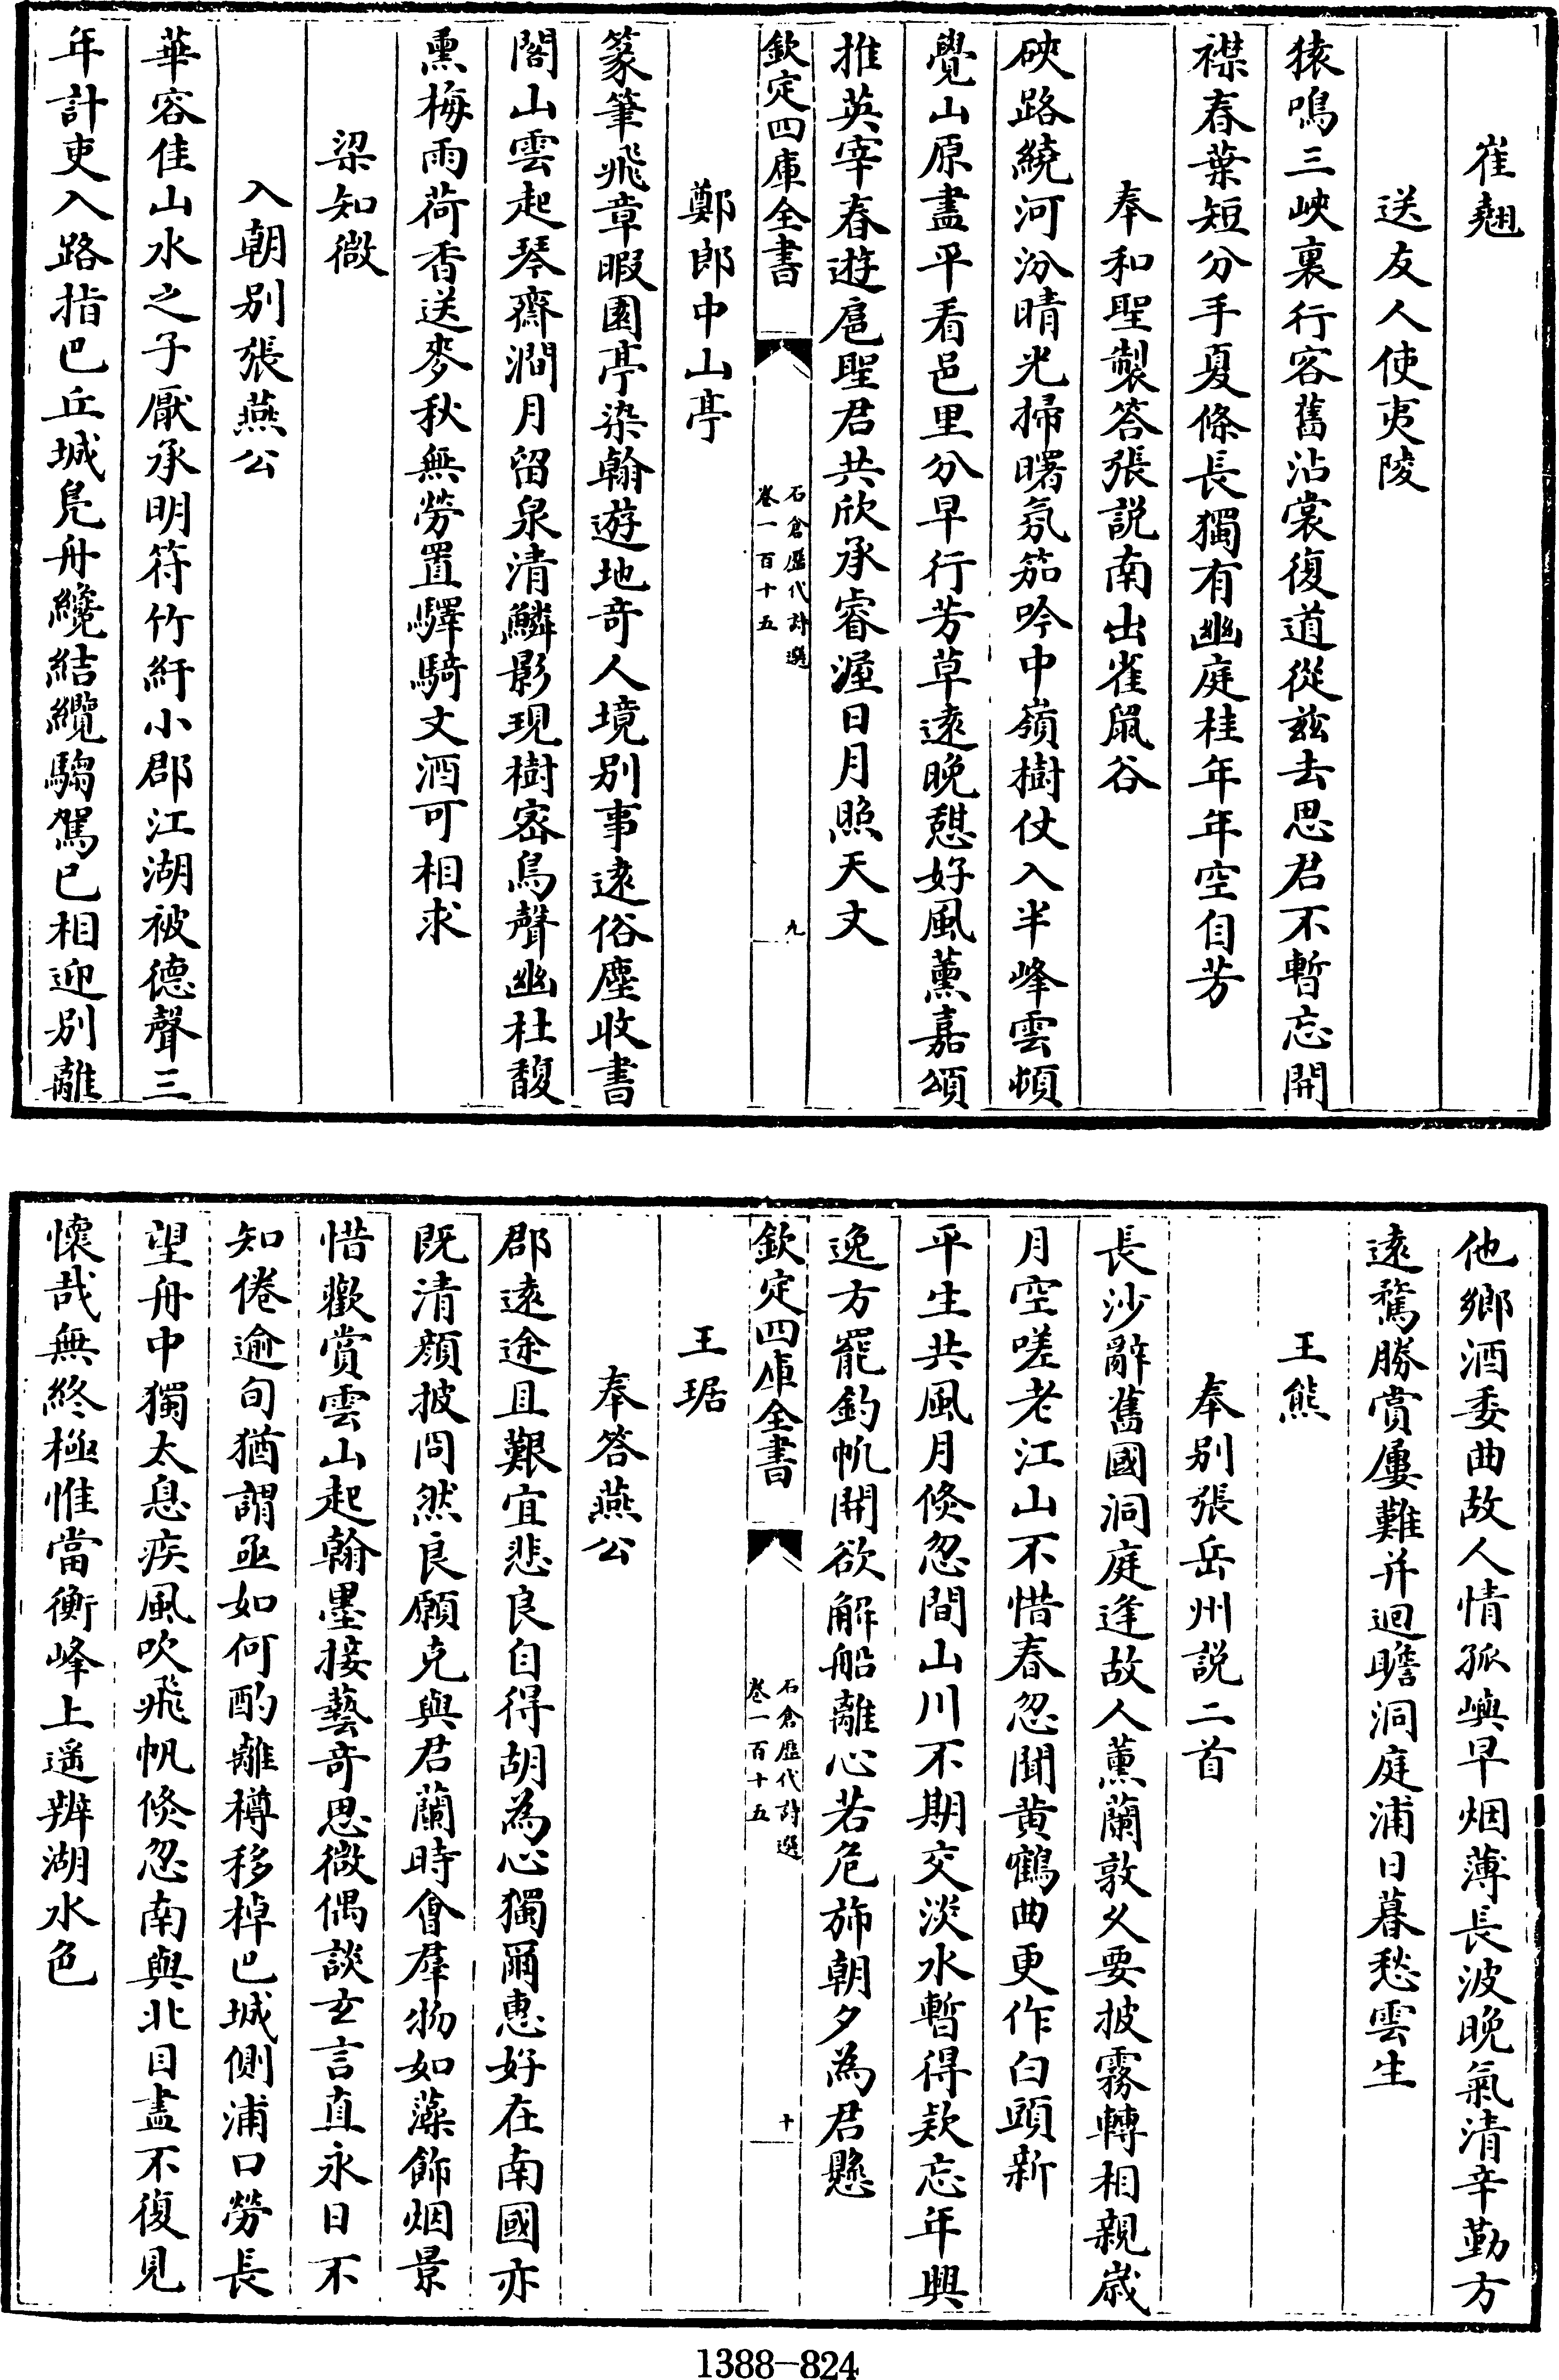 崔翹
送友人使夷陵
猿鳴三峽裏行客舊沾裳復道從兹去思君不暫忘開
襟春葉短分手夏條長獨有幽庭桂年年空自芳
奉和聖製答張説南出雀鼠谷
硤路繞河汾晴光掃曙氛笳吟中嶺樹仗入半峰雲頓
覺山原盡平看邑里分早行芳草逺晚憇好風薫嘉頌
推英宰春遊扈聖君共欣承睿渥日月照天文
欽定四庫全書
石倉歴代詩選
卷一百十五
九
鄭郎中山亭
篆筆飛章暇園亭染翰遊地奇人境别事逺俗塵收書
閣山雲起琴齋澗月留泉清鱗影現樹宻鳥聲幽杜馥
熏梅雨荷香送麥秋無勞置驛騎文酒可相求
梁知微
入朝别張燕公
華容佳山水之子厭承明符竹紆小郡江湖被德聲三
年計吏入路指巴丘城鳬舟纔結纜騶駕已相迎别離
他鄉酒委曲故人情孤嶼早烟薄長波晚氣清辛勤方
逺騖勝賞屢難并迴瞻洞庭浦日暮愁雲生
王熊
奉别張岳州説二首
長沙辭舊國洞庭逢故人薫蘭敦久要披霧轉相親嵗
月空嗟老江山不惜春忽聞黄鶴曲更作白頭新
平生共風月倐忽間山川不期交淡水暫得欵忘年興
逸方罷釣帆開欲解船離心若危斾朝夕為君懸
欽定四庫全書
石倉歴代詩選
卷一百十五
十
王琚
奉答燕公
郡逺途且艱宜悲良自得胡為心獨爾惠好在南國亦
既清顔披冏然良願克與君蘭時會羣物如藻飾烟景
惜歡賞雲山起翰墨接藝竒思微偶談𤣥言直永日不
知倦逾旬猶謂亟如何酌離樽移棹巴城側浦口勞長
望舟中獨太息疾風吹飛帆倐忽南與北目盡不復見
懐哉無終極惟當衡峰上遥辨湖水色
1388-824